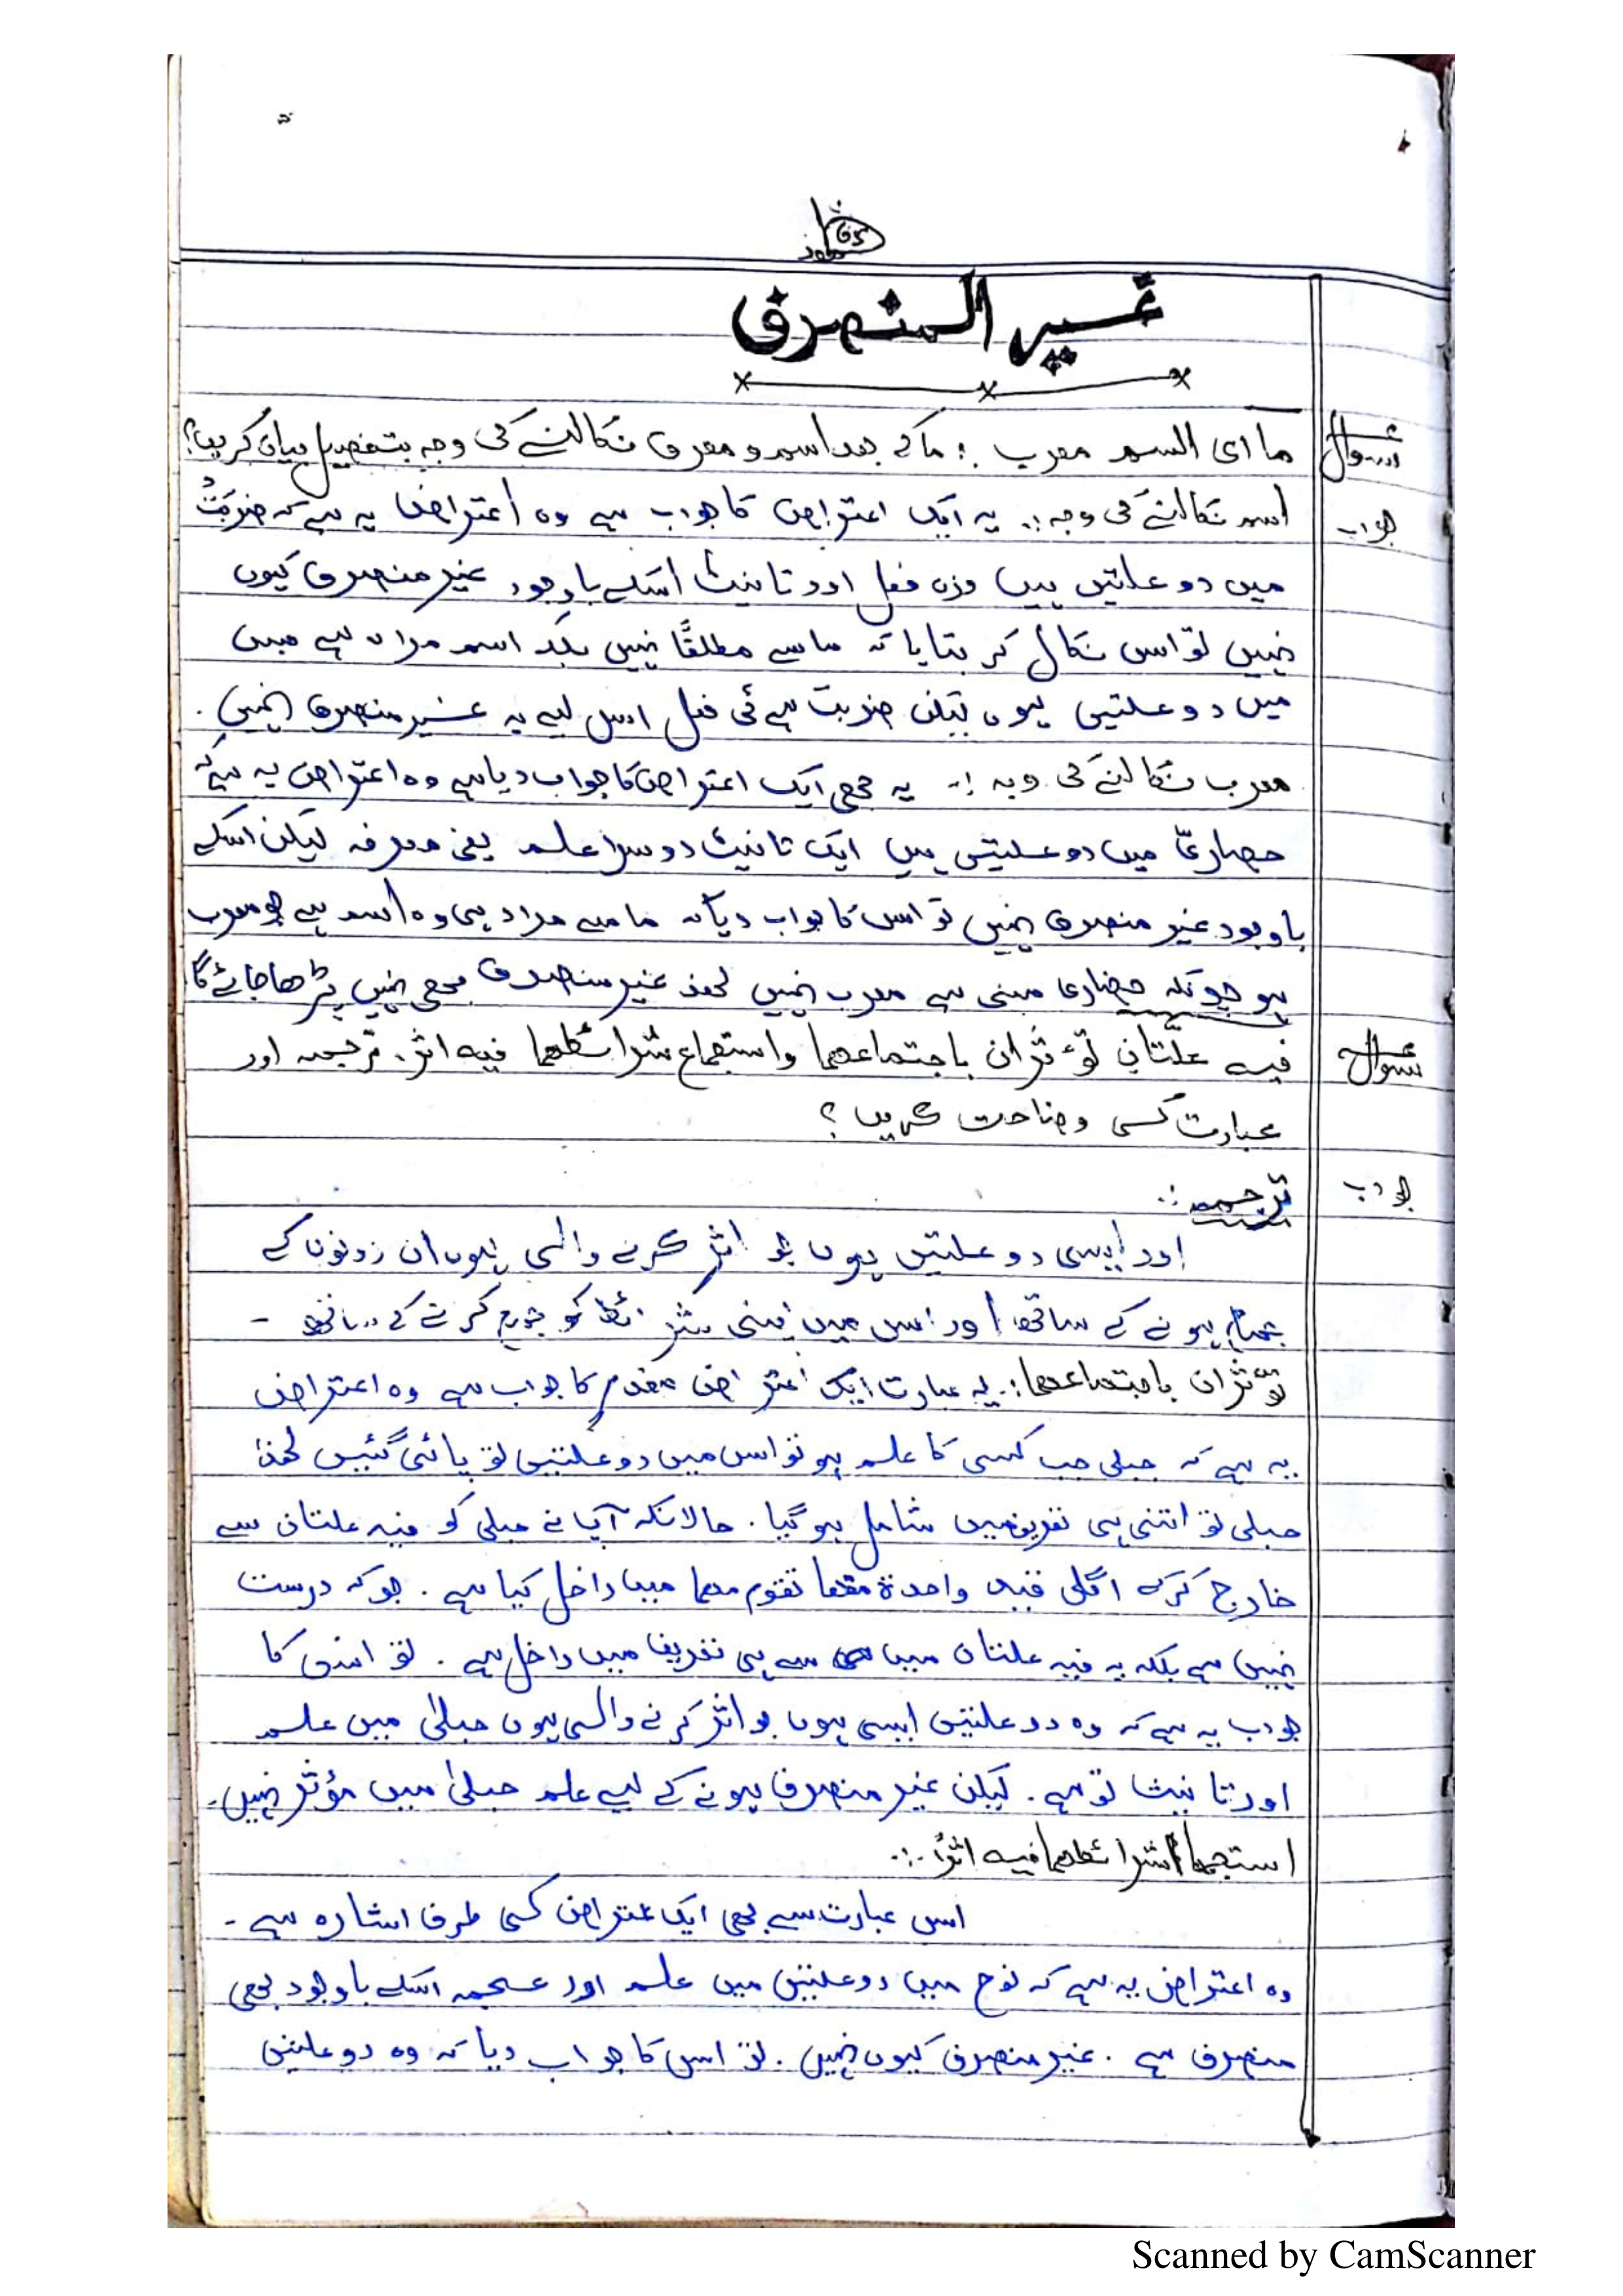 غير المنصرف
سوال ما ای اسم معرب :. ما کے بعد اسم و معرب نکالنے کی وجہ بتفصیل بیان کریں؟
جواب اسم نکالنے کی وجہ :. یہ ایک اعتراض کا جواب ہے وہ اعتراض یہ ہے کہ ضربَتْ
میں دو علتیں ہیں وزن فعل اور تانیث اسکے باوجود غیر منصرف کیوں
نہیں تو اس نکال کر بتایا کہ ما سے مطلقًا نہیں بلکہ اسم مراد ہے جس
میں دو علتیں ہوں لیکن ضربت ہے ئی فعل اس لیے یہ غیر منصرف نہیں .
معرب نکالنے کی وجہ :. یہ بھی ایک اعتراض کا جواب دیا ہے وہ اعتراض یہ ہے کہ
حضارِ میں دو علیتیں ہیں ایک تانیث دوسرا علم یعنی معرفہ لیکن اسکے
باوجود غیر منصرف نہیں تو اس کا جواب دیا کہ ما سے مراد ہی وہ اسم ہے جو معرب
ہو جونکہ حضار مبنی ہے معرب نہیں لھذ غیر منصرف بھی نہیں پڑھا جائے گا
سوال فیہ علّتَانِ تؤثران باجتماعھما واستجماع شرائطھما فیہ اثر . ترجمہ اور
عبارت کسی وضاحت کریں ؟
جواب ترجمہ :.
اور ایسی دو علتیں ہوں جو اثر کرنے والی ہوں ان دونوں کے
جمع ہونے کے ساتھ اور اس میں اپنی شرائط کو جمع کرنے کے ساتھ -
تؤثران باجتماعھما :. یہ عبارت ایک اعتراض مقدم کا جواب ہے وہ اعتراض
یہ ہے کہ حبلی جب کسی کا علم ہو تو اس میں دو علتیں تو پائی گئیں لھذا
حبلی تو اتنی ہی تعریف میں شامل ہو گیا . حالانکہ آپ نے حبلی کو فیہ علتان سے
خارج کرکے اگلی قید واحدة منھا تقوم مقامھما میں داخل کیا ہے . جو کہ درست
نہیں ہے بلکہ یہ فیہ علتان میں سے ہی تعریف میں داخل ہے . تو اسکا
جواب یہ ہے کہ وہ دو علتیں ایسی ہوں جو اثر کرنے والی ہوں حبلیٰ میں علم
اور تانیث تو ہے . لیکن غیر منصرف ہونے کے لیے علم حبلیٰ میں مؤثر نہیں .
استجماع شرائطھما فیہ اثرٌ :.
اس عبارت سے بھی ایک اعتراض کسی طرف اشارہ ہے -
وہ اعتراض یہ ہے کہ نوح میں دو علتیں میں علم اور عجمہ اسکے باوجود بھی
منصرف ہے . غیر منصرف کیوں نہیں . تو اس کا جواب دیا کہ وہ دو علتیں
Scanned by CamScanner